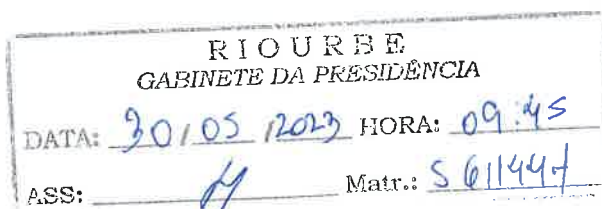 RIOURBE
GABINETE DA PRESIDÊNCIA
DATA: 30/05/2023 HORA: 09:45
ASS: Matr.: S 611447